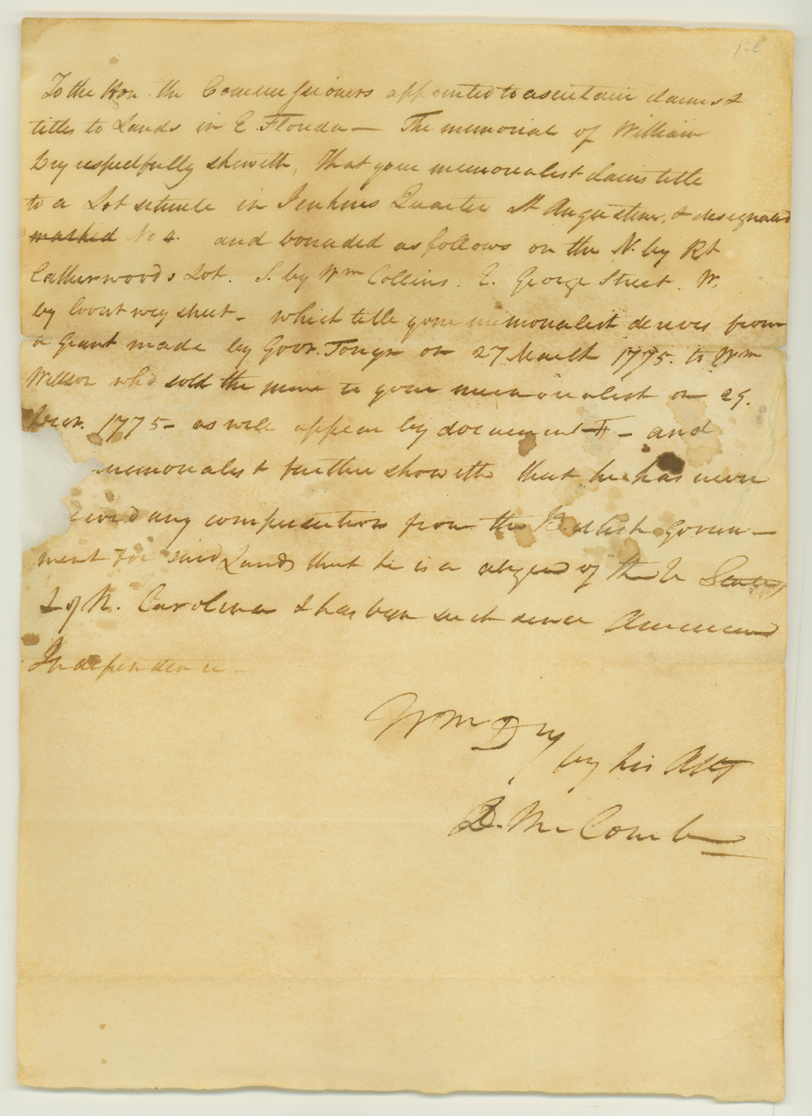 1-8
To the Hon. the Commissioners appointed to ascertain claims &
titles to Lands in E Florida — The memorial of William
Dry respectfully sheweth, That your memorialist claims title
to a Lot situate in Jenkins Quarter St Augustine, & designated
marked No 4. and bounded as follows on the N. by Rt
Catherwoods Lot. S. by Wm Collins. E. George Street. W.
by street - which title your memorialist derives from
a grant made by Govr. Tonyn on 27 March 1775. to Wm
Willson who sold the same to your memorialist on 29.
1775 - as will appear by document - and
memorialist further showeth that he has never
any compensation from the British Govern-
ment for said Lands that he is a of the U States
& of N. Carolina & has been such since American
Independence -
Wm Dry
by his Atty
D. McComb